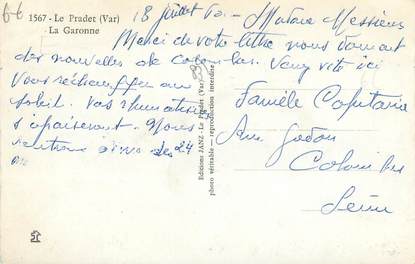 1567 - Le Pradet (Var)
La Garonne
18 juillet 60 - Madame Messieurs
Merci de votre lettre nous donnant
des nouvelles de Colombes. Venez vite ici
vous réchauffer au
soleil. vos rhumatismes
s'apaiseront. Nous
rentrons le 24
Famille
Av.
Colombes
Seine
Editions JANZ - Le Pradet (Var)
photo véritable - reproduction interdite